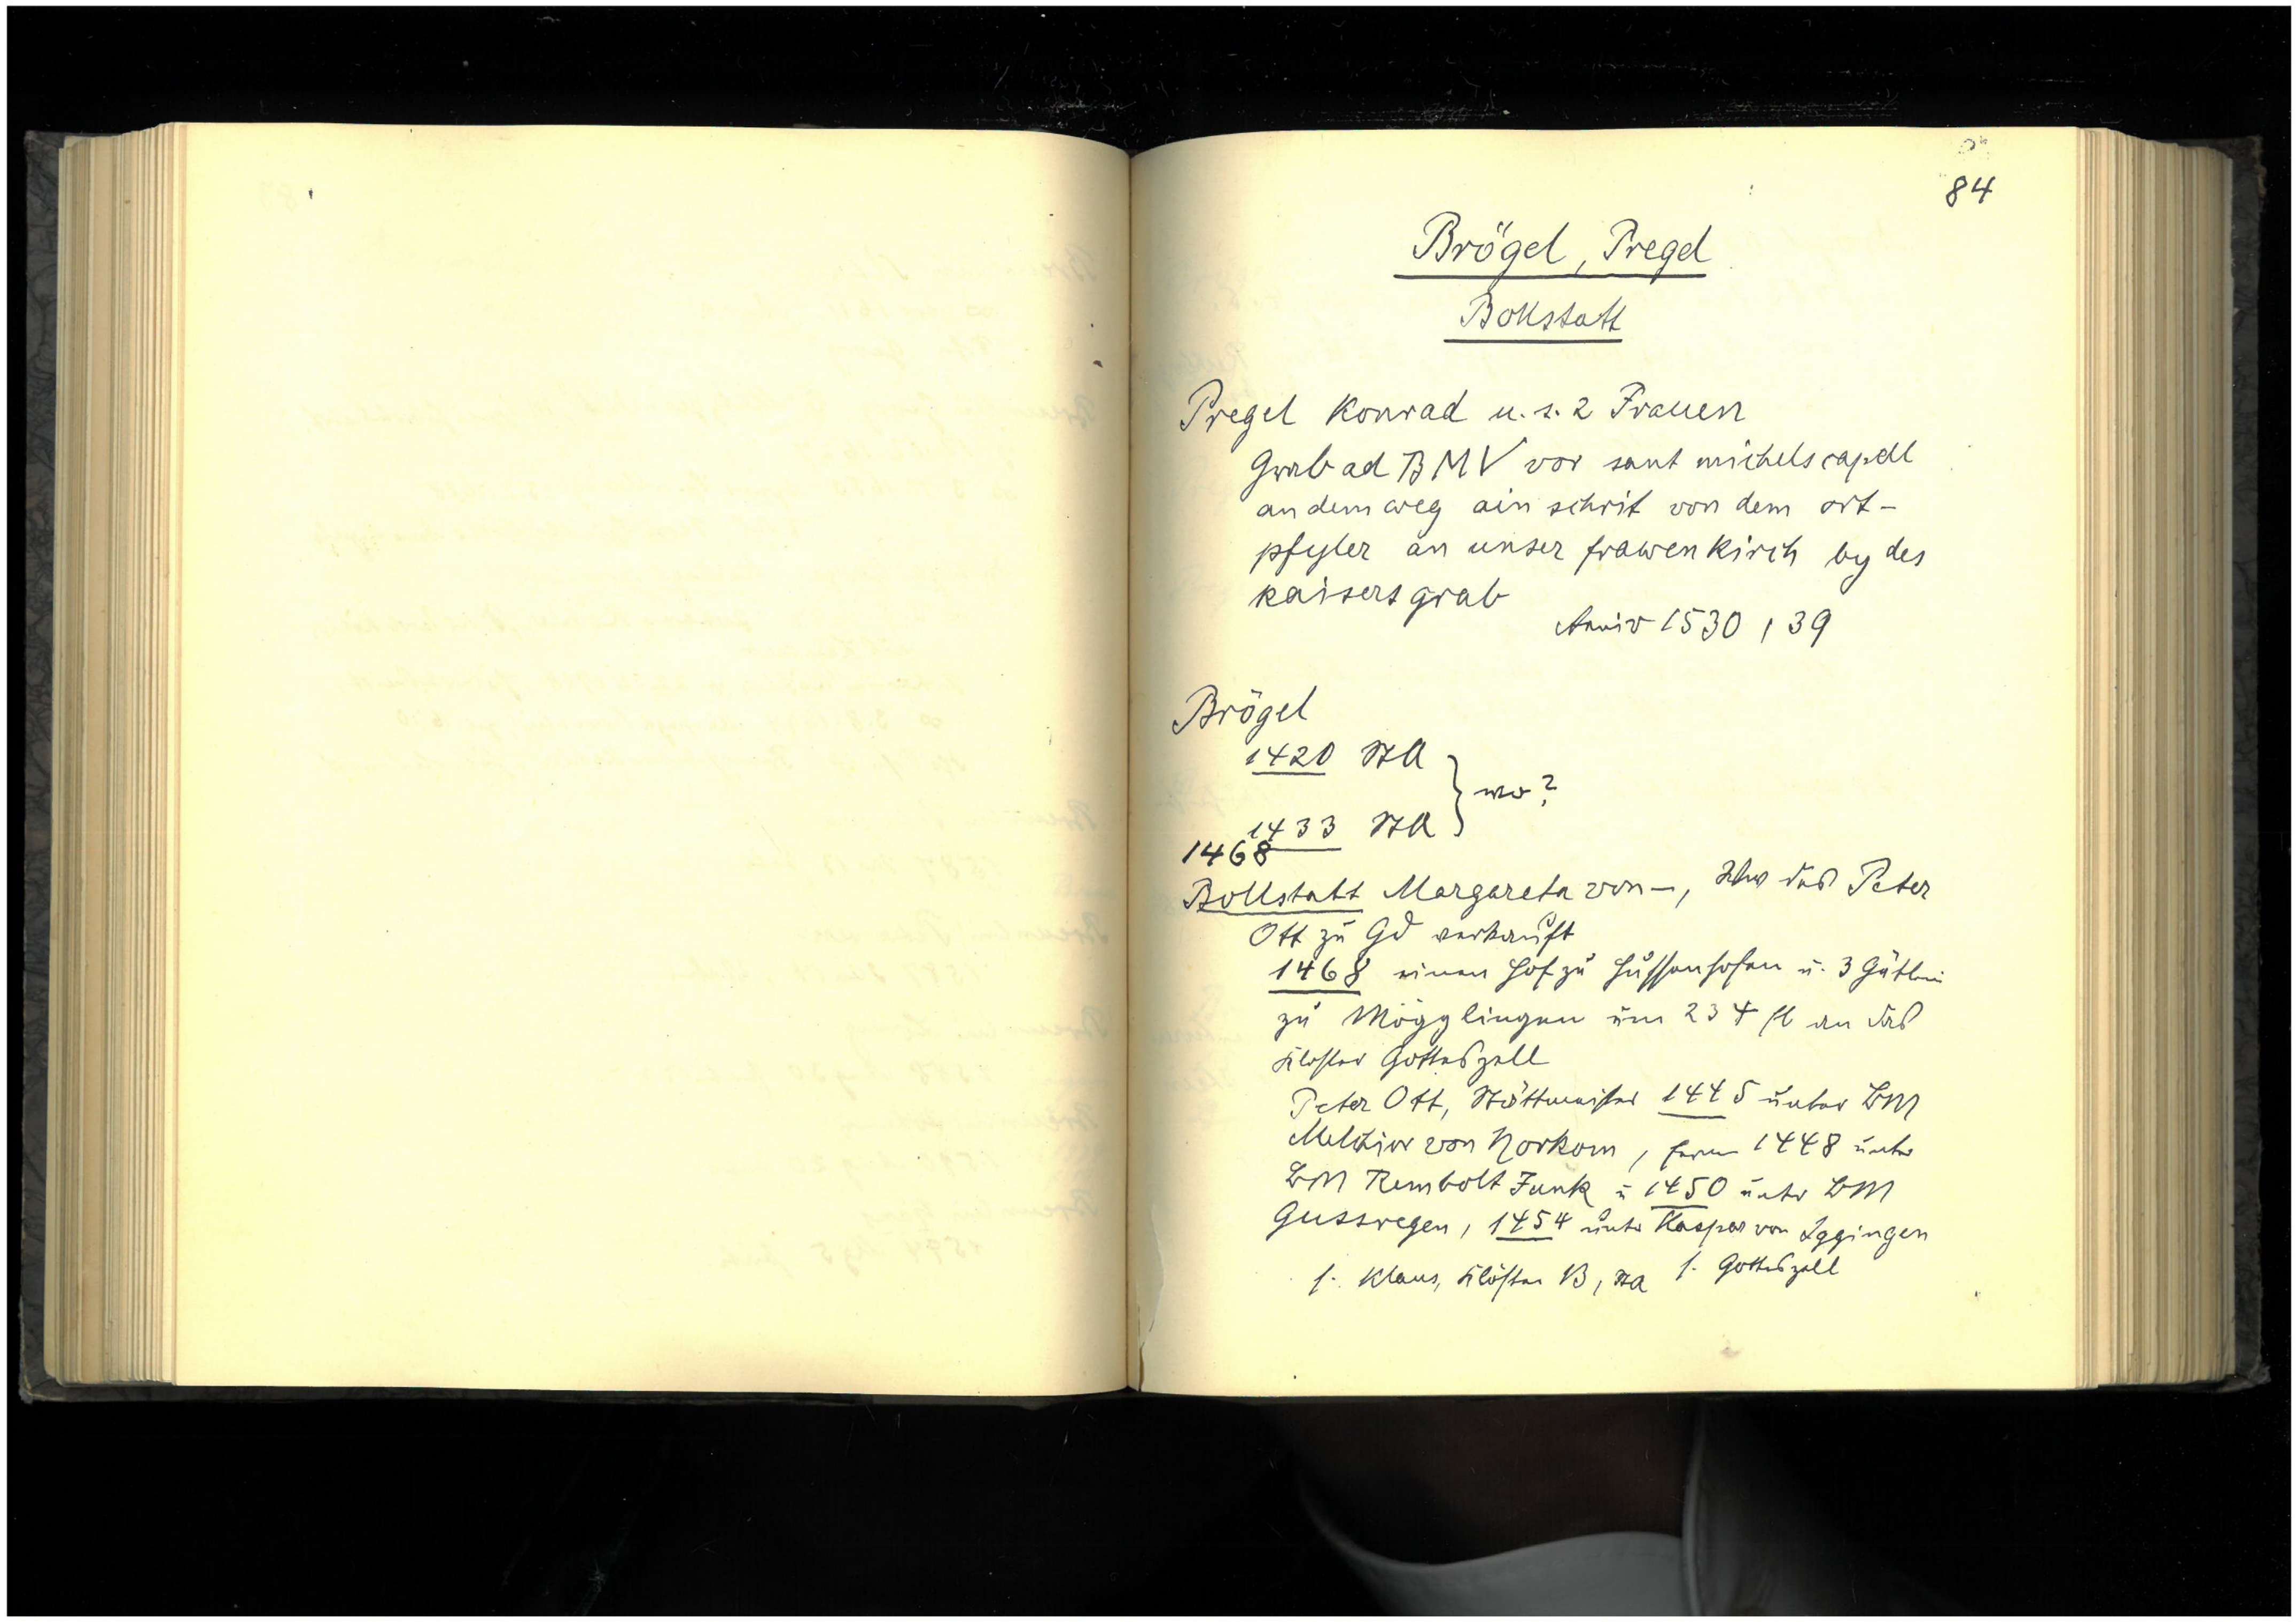 84
Brögel, Pregel
Bollstatt
Pregel Konrad u. s. 2 Frauen
Grab ad BMV vor sant michels capell
an dem weg ain schrit von dem ort-
pfyler an unser frawen kirch by des
kaisers grab
Anniv 1530, 39
Brögel
1420 StA
} wo?
1433 StA
1468
Bollstatt Margareta von –, Wwe des Peter
Ott zu Gd verkauft
1468 einen Hof zu Hussenhofen u. 3 Gütlein
zu Mögglingen um 234 fl an das
Kloster Gotteszell
Peter Ott, Stättmeister 1445 unter BM
Melchior von Horkom, ferner 1448 unter
BM Rembolt Funk u 1450 unter BM
Gussregen, 1454 unter Kaspar von Iggingen
s. Klaus, Klöster B, StA s. Gotteszell